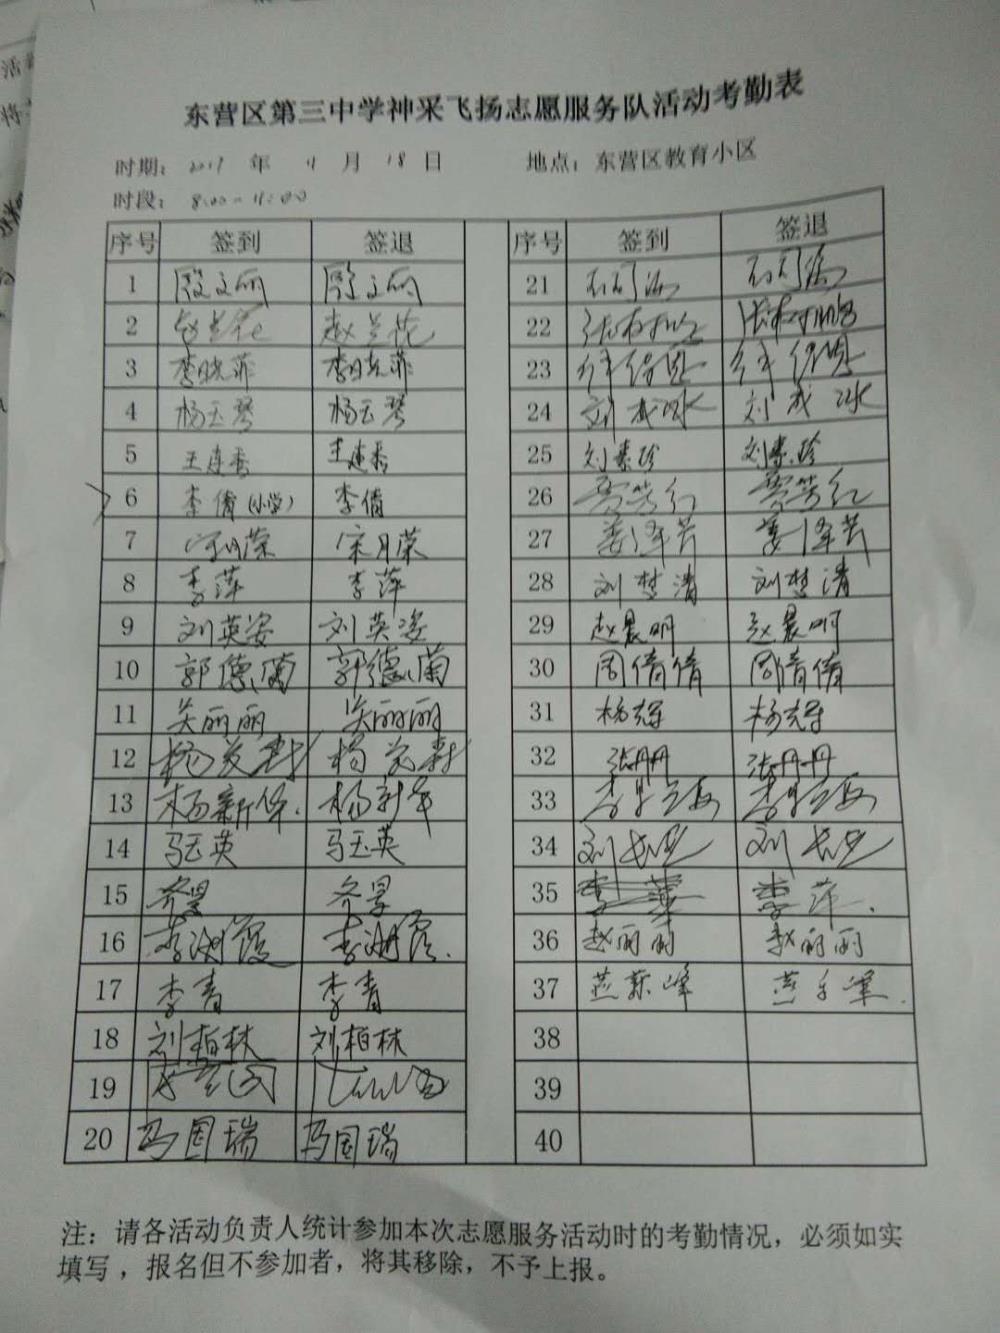 东营区第三中学神采飞扬志愿服务队活动考勤表
时期: 2017 年 11 月 18 日 地点: 东营区教育小区
时段: 8:00-11:00
序号 签到 签退 序号 签到 签退
1 殷文丽 殷文丽 21
2 赵兰花 赵兰花 22
3 李晓菲 李晓菲 23
4 杨玉琴 杨玉琴 24 刘成冰 刘成冰
5 王连香 王连香 25 刘素珍 刘素珍
6 李倩(小学) 李倩 26 贾芳红 贾芳红
7 宋月荣 宋月荣 27 姜泽芳 姜泽芳
8 李萍 李萍 28 刘梦清 刘梦清
9 刘英姿 刘英姿 29 赵晨明 赵晨明
10 郭德兰 郭德兰 30 周倩倩 周倩倩
11 吴丽丽 吴丽丽 31 杨辉 杨辉
12 杨 杨 32 张丹丹 张丹丹
13 杨新华. 杨新华 33 李 李
14 马玉英 马玉英 34 刘 刘
15 齐景 齐景 35 李萍.
16 李湘霞 李湘霞. 36 赵丽丽 赵丽丽
17 李青 李青 37 燕东峰 燕东峰.
18 刘柏林 刘柏林 38
19 39
20 冯国瑞 冯国瑞 40
注: 请各活动负责人统计参加本次志愿服务活动时的考勤情况, 必须如实
填写, 报名但不参加者, 将其移除, 不予上报。